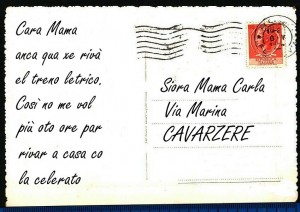 Cara Mama
anca qua xe rivà
el treno letrico.
Così no me vol
più oto ore par
rivar a casa co
la celerato
Siora Mama Carla
Via Marina
CAVARZERE